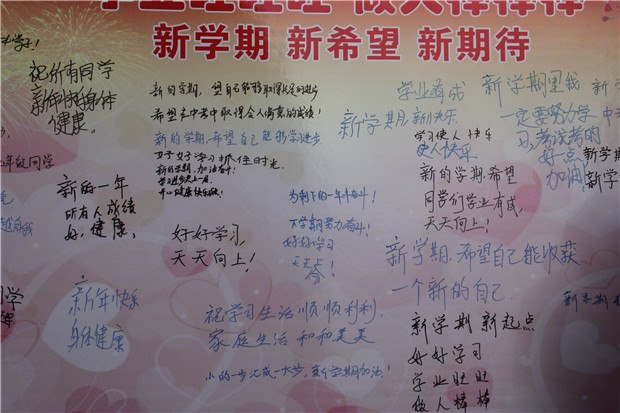 学业旺旺旺 做人棒棒棒
新学期 新希望 新期待
祝所有同学
新年快乐身体
健康。
年级同学
新的一年
所有人成绩
好,健康。
新年快乐
身体健康
希望在中考中取得令人满意的成绩!
新的学期,希望自己能够学习进步
好好学习 抓住时光。
新的学期,加油奋斗!
好好学习,
天天向上!
为剩下的一年半奋斗!
下学期努力奋斗!
好好学习
天天
学业有成
新学期,新快乐
学习使人快乐
使人快乐
新的学期,希望
同学们学业有成,
天天向上!
新学期里我
一定要努力学
习,考试考的
好一点
加油
新学期
新学
新学期,希望自己能收获
一个新的自己
祝学习生活顺顺利利,
家庭生活和和美美
小的一步汇成一大步,新学期加油!
新学期 新起点
好好学习
学业旺旺
做人棒棒
新学期